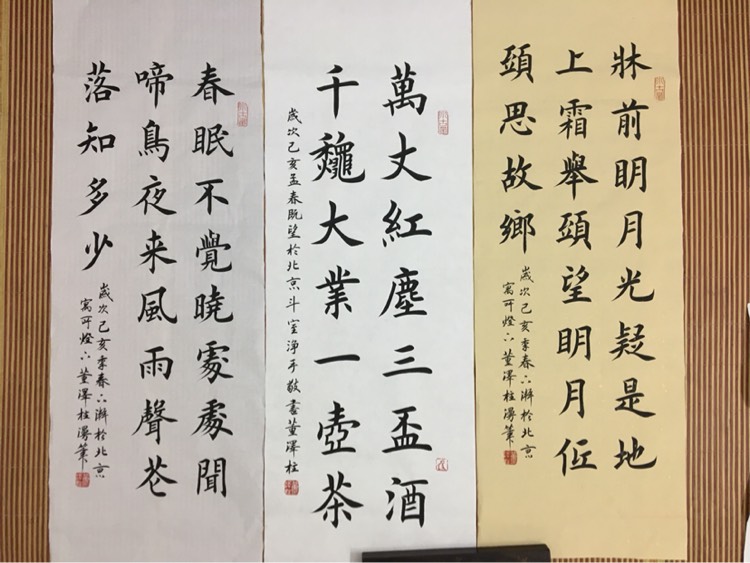 牀前明月光疑是地
上霜舉頭望明月低
頭思故鄉
歲次己亥季春於北京
董澤柱漫筆
萬丈紅塵三盃酒
千龝大業一壺茶
歲次己亥孟春既望於北京斗室淨手敬書董澤柱
春眠不覺曉處處聞
啼鳥夜来風雨聲花
落知多少
歲次己亥季春於北京
董澤柱漫筆